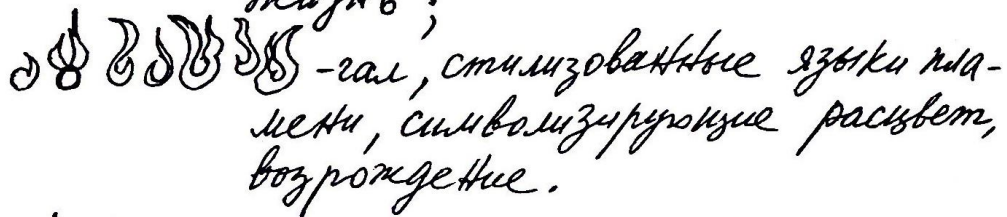 жизнь;
-гал, стилизованные языки пла-
мени, символизирующие расцвет,
возрождение.